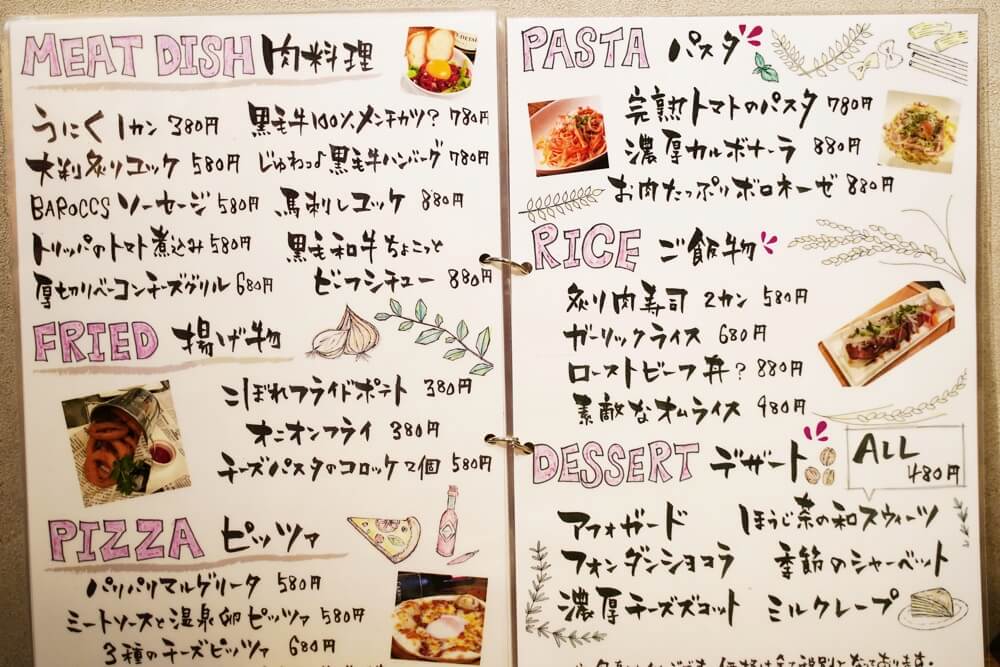 MEAT DISH 肉料理
うにく 1カン 380円
大判炙りユッケ 580円
BAROCCS ソーセージ 580円
トリッパのトマト煮込み 580円
厚切りベーコンチーズグリル 680円
黒毛牛100%メンチカツ? 780円
じゅわっと黒毛牛ハンバーグ 780円
馬刺しユッケ 880円
黒毛和牛ちょこっと
ビーフシチュー 880円
FRIED 揚げ物
こぼれフライドポテト 380円
オニオンフライ 380円
チーズパスタのコロッケ2個 580円
PIZZA ピッツァ
パリパリマルゲリータ 580円
ミートソースと温泉卵ピッツァ 580円
3種のチーズピッツァ 680円
PASTA パスタ
完熟トマトのパスタ 780円
濃厚カルボナーラ 880円
お肉たっぷりボロネーゼ 880円
RICE ご飯物
炙り肉寿司 2カン 580円
ガーリックライス 680円
ローストビーフ丼? 880円
素敵なオムライス 980円
DESSERT デザート
ALL
480円
アフォガード
フォンダンショコラ
濃厚チーズズコット
ほうじ茶の和スウィーツ
季節のシャーベット
ミルクレープ